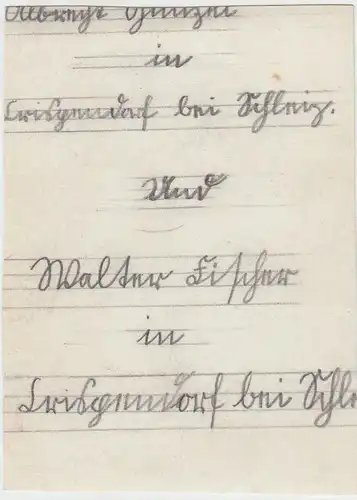 Albrecht Günzel
in
Crispendorf bei Schleiz.
Und
Walter Fischer
in
Crispendorf bei Schle